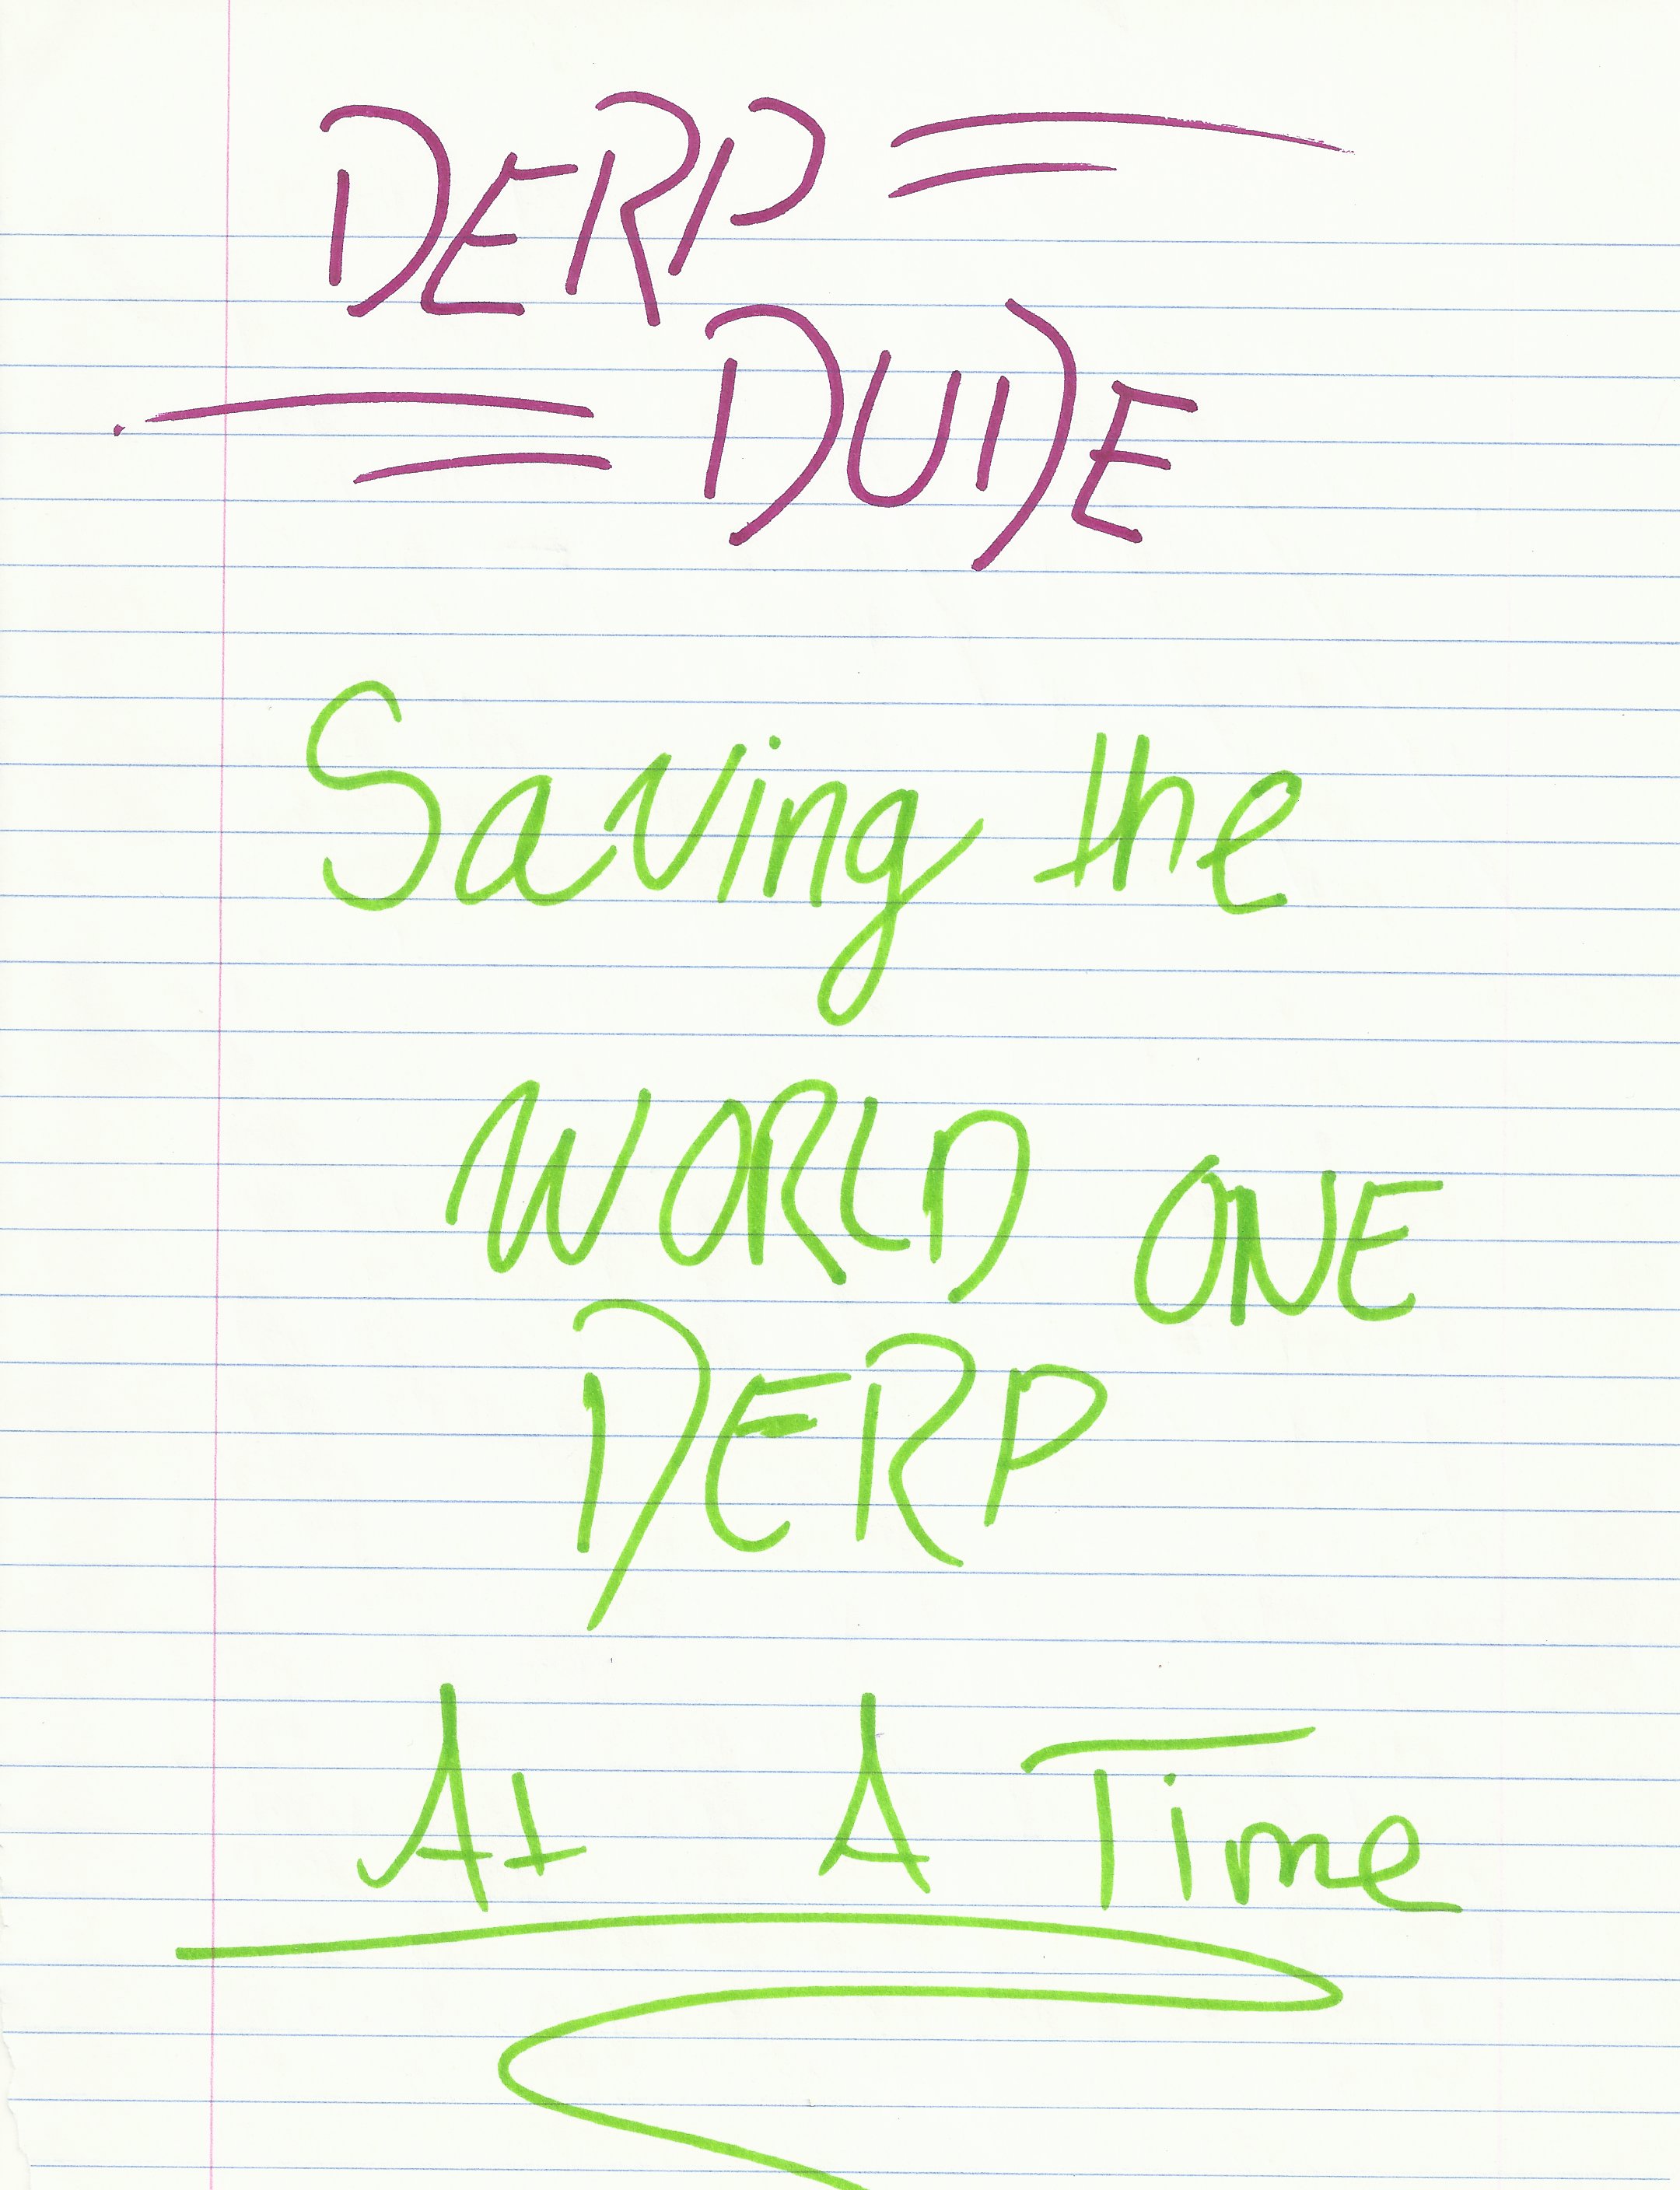 DERP
DUDE
Saving the
WORLD ONE
DERP
At A Time